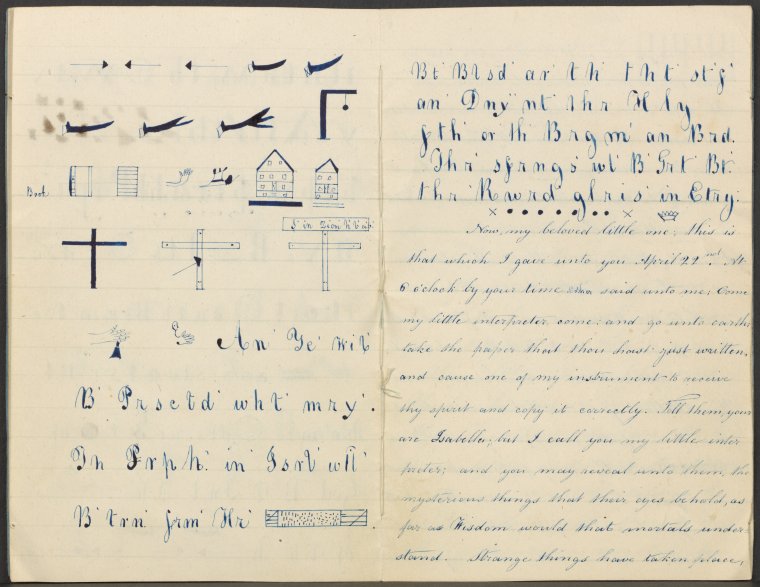 Book
An' Ye' wil'
B' Prsctd' wht' mry'.
Th Prph' in' Isrl' wll'
B' trn' frm' Hr'
Bt' Blsd' ar' th' tht' st'f'
an' Dny' nt' thr' H ly
fth' or th' Brgm' an' Brd.
Thr' sfrngs' wl' B' Grt' Bt'
thr' Rwrd' glris' in Etry.
Now, my beloved little one; this is
that which I gave unto you April 22nd. At
6 o'clock by your time said unto me; Come
my little interpreter, come; and go unto earth;
take the paper that thou hast just written,
and cause one of my instrument to receive
thy spirit and copy it correctly. Tell them, you
are Isabella; but I call you my little inter
preter; and you may reveal unto them, the
mysterious things that their eyes behold, as
far as Wisdom would that mortals under-
stand. Strange things have taken place,